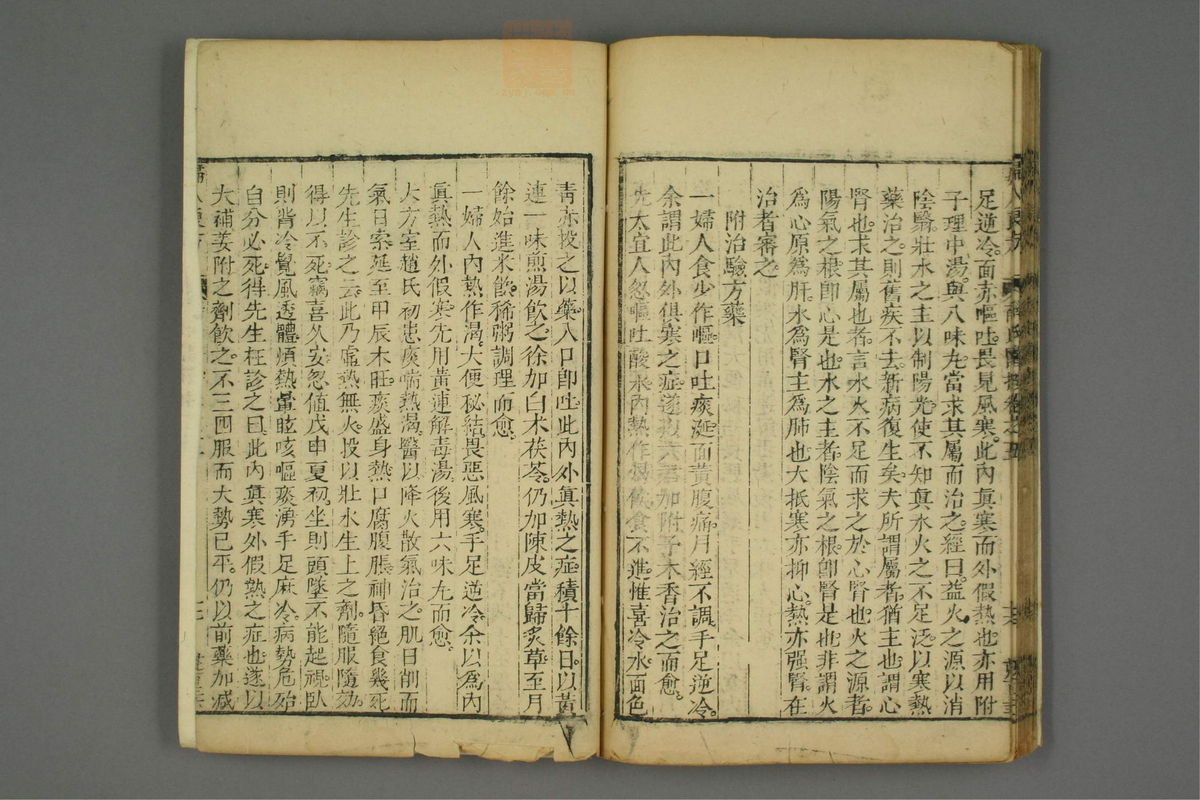 足逆冷。面赤嘔吐。畏見風寒。此內眞寒而外假熱也。亦用附
子理中湯。與八味丸。當求其屬而治之。經曰。益火之源以消
陰翳。壯水之主以制陽光。使不知眞水火之不足。泛以寒熱
藥治之。則舊疾不去。新病復生矣。夫所謂屬者。猶主也。謂心
腎也。求其屬也者。言水火不足而求之於心腎也。火之源者。
陽氣之根。卽心是也。水之主者。陰氣之根。卽腎是也。非謂火
爲心。原爲肝。水爲腎。主爲肺也。大抵寒亦抑心。熱亦强腎。在
治者審之。
附治驗方藥
一婦人食少作嘔。口吐痰涎。面黃腹痛。月經不調。手足逆冷。
余謂此內外俱寒之症。遂以六君加附子木香治之而愈。
先太宜人忽嘔吐酸水。內熱作渴。飲食不進。惟喜冷水。面色
青赤。投之以藥。入口卽吐。此內外眞熱之症。積十餘日。以黃
連一味煎湯飲之。徐加白朮茯苓。仍加陳皮當歸炙草。至月
餘始進米飲。稀粥調理而愈。
一婦人內熱作渴。大便秘結。畏惡風寒。手足逆冷。余以爲內
眞熱而外假寒。先用黃連解毒湯。後用六味丸而愈。
大方室趙氏初患痰喘熱渴。醫以降火散氣治之。肌日削而
氣日索。延至甲辰木旺。痰盛身熱。口腐腹脹。神昏絕食。幾死。
先生診之云。此乃虛熱無火。投以壯水生土之劑。隨服隨効。
得以不死。竊喜久安。忽値戊申夏初。坐則頭墜不能起視。臥
則背冷覺風透體。煩熱暈眩。咳嘔痰湧。手足麻冷。病勢危殆
自分必死。得先生枉診之曰。此內眞寒外假熱之症也。遂以
大補姜附之劑飲之。不三四服而大勢已平。仍以前藥加減